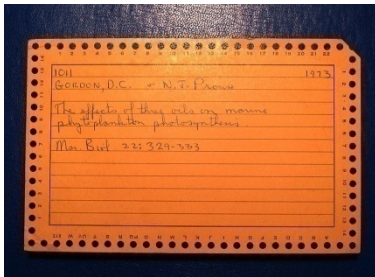 1041 1973
GORDON, D.C. + N.J. PROUSE
The effects of three oils on marine
phytoplankton photosynthesis.
Mar. Biol 22: 329-333